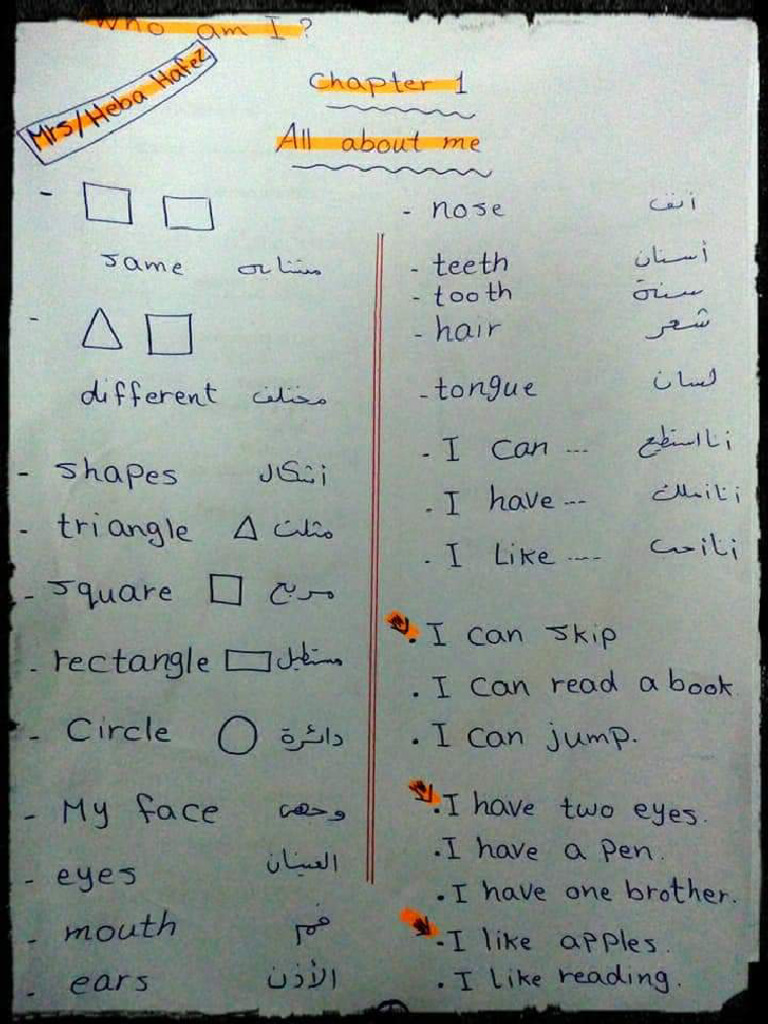 Who am I?
Mrs/Heba Hafez
Chapter 1
All about me
same متشابه
different مختلف
- shapes أشكال
- triangle مثلث
- square مربع
- rectangle مستطيل
- Circle دائرة
- My face وجهى
- eyes العينان
- mouth فم
- ears الأذن
- nose أنف
- teeth أسنان
- tooth سنة
- hair شعر
- tongue لسان
. I can ... أنا استطيع
. I have ... أنا أملك
. I Like .... أنا أحب
. I can skip
. I can read a book
. I can jump.
. I have two eyes.
. I have a pen.
. I have one brother.
. I like apples.
. I like reading.